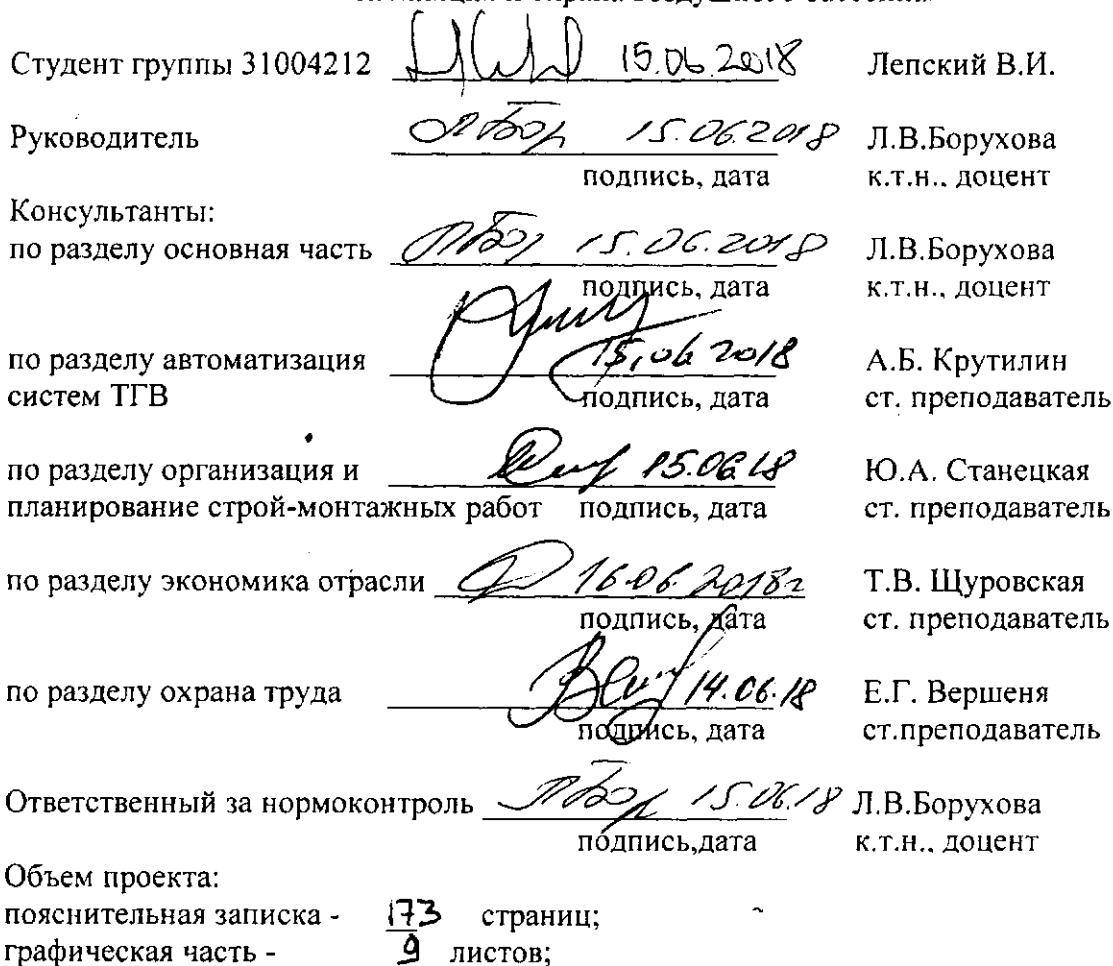 Студент группы 31004212 15.06.2018 Лепский В.И.
Руководитель 15.06.2018 Л.В.Борухова
подпись, дата к.т.н., доцент
Консультанты:
по разделу основная часть 15.06.2018 Л.В.Борухова
подпись, дата к.т.н., доцент
по разделу автоматизация 15.06 2018 А.Б. Крутилин
систем ТГВ подпись, дата ст. преподаватель
по разделу организация и 15.06.18 Ю.А. Станецкая
планирование строй-монтажных работ подпись, дата ст. преподаватель
по разделу экономика отрасли 16.06.2018г Т.В. Щуровская
подпись, дата ст. преподаватель
по разделу охрана труда 14.06.18 Е.Г. Вершеня
подпись, дата ст.преподаватель
Ответственный за нормоконтроль 15.06.18 Л.В.Борухова
подпись,дата к.т.н., доцент
Объем проекта:
пояснительная записка - 173 страниц;
графическая часть - 9 листов;